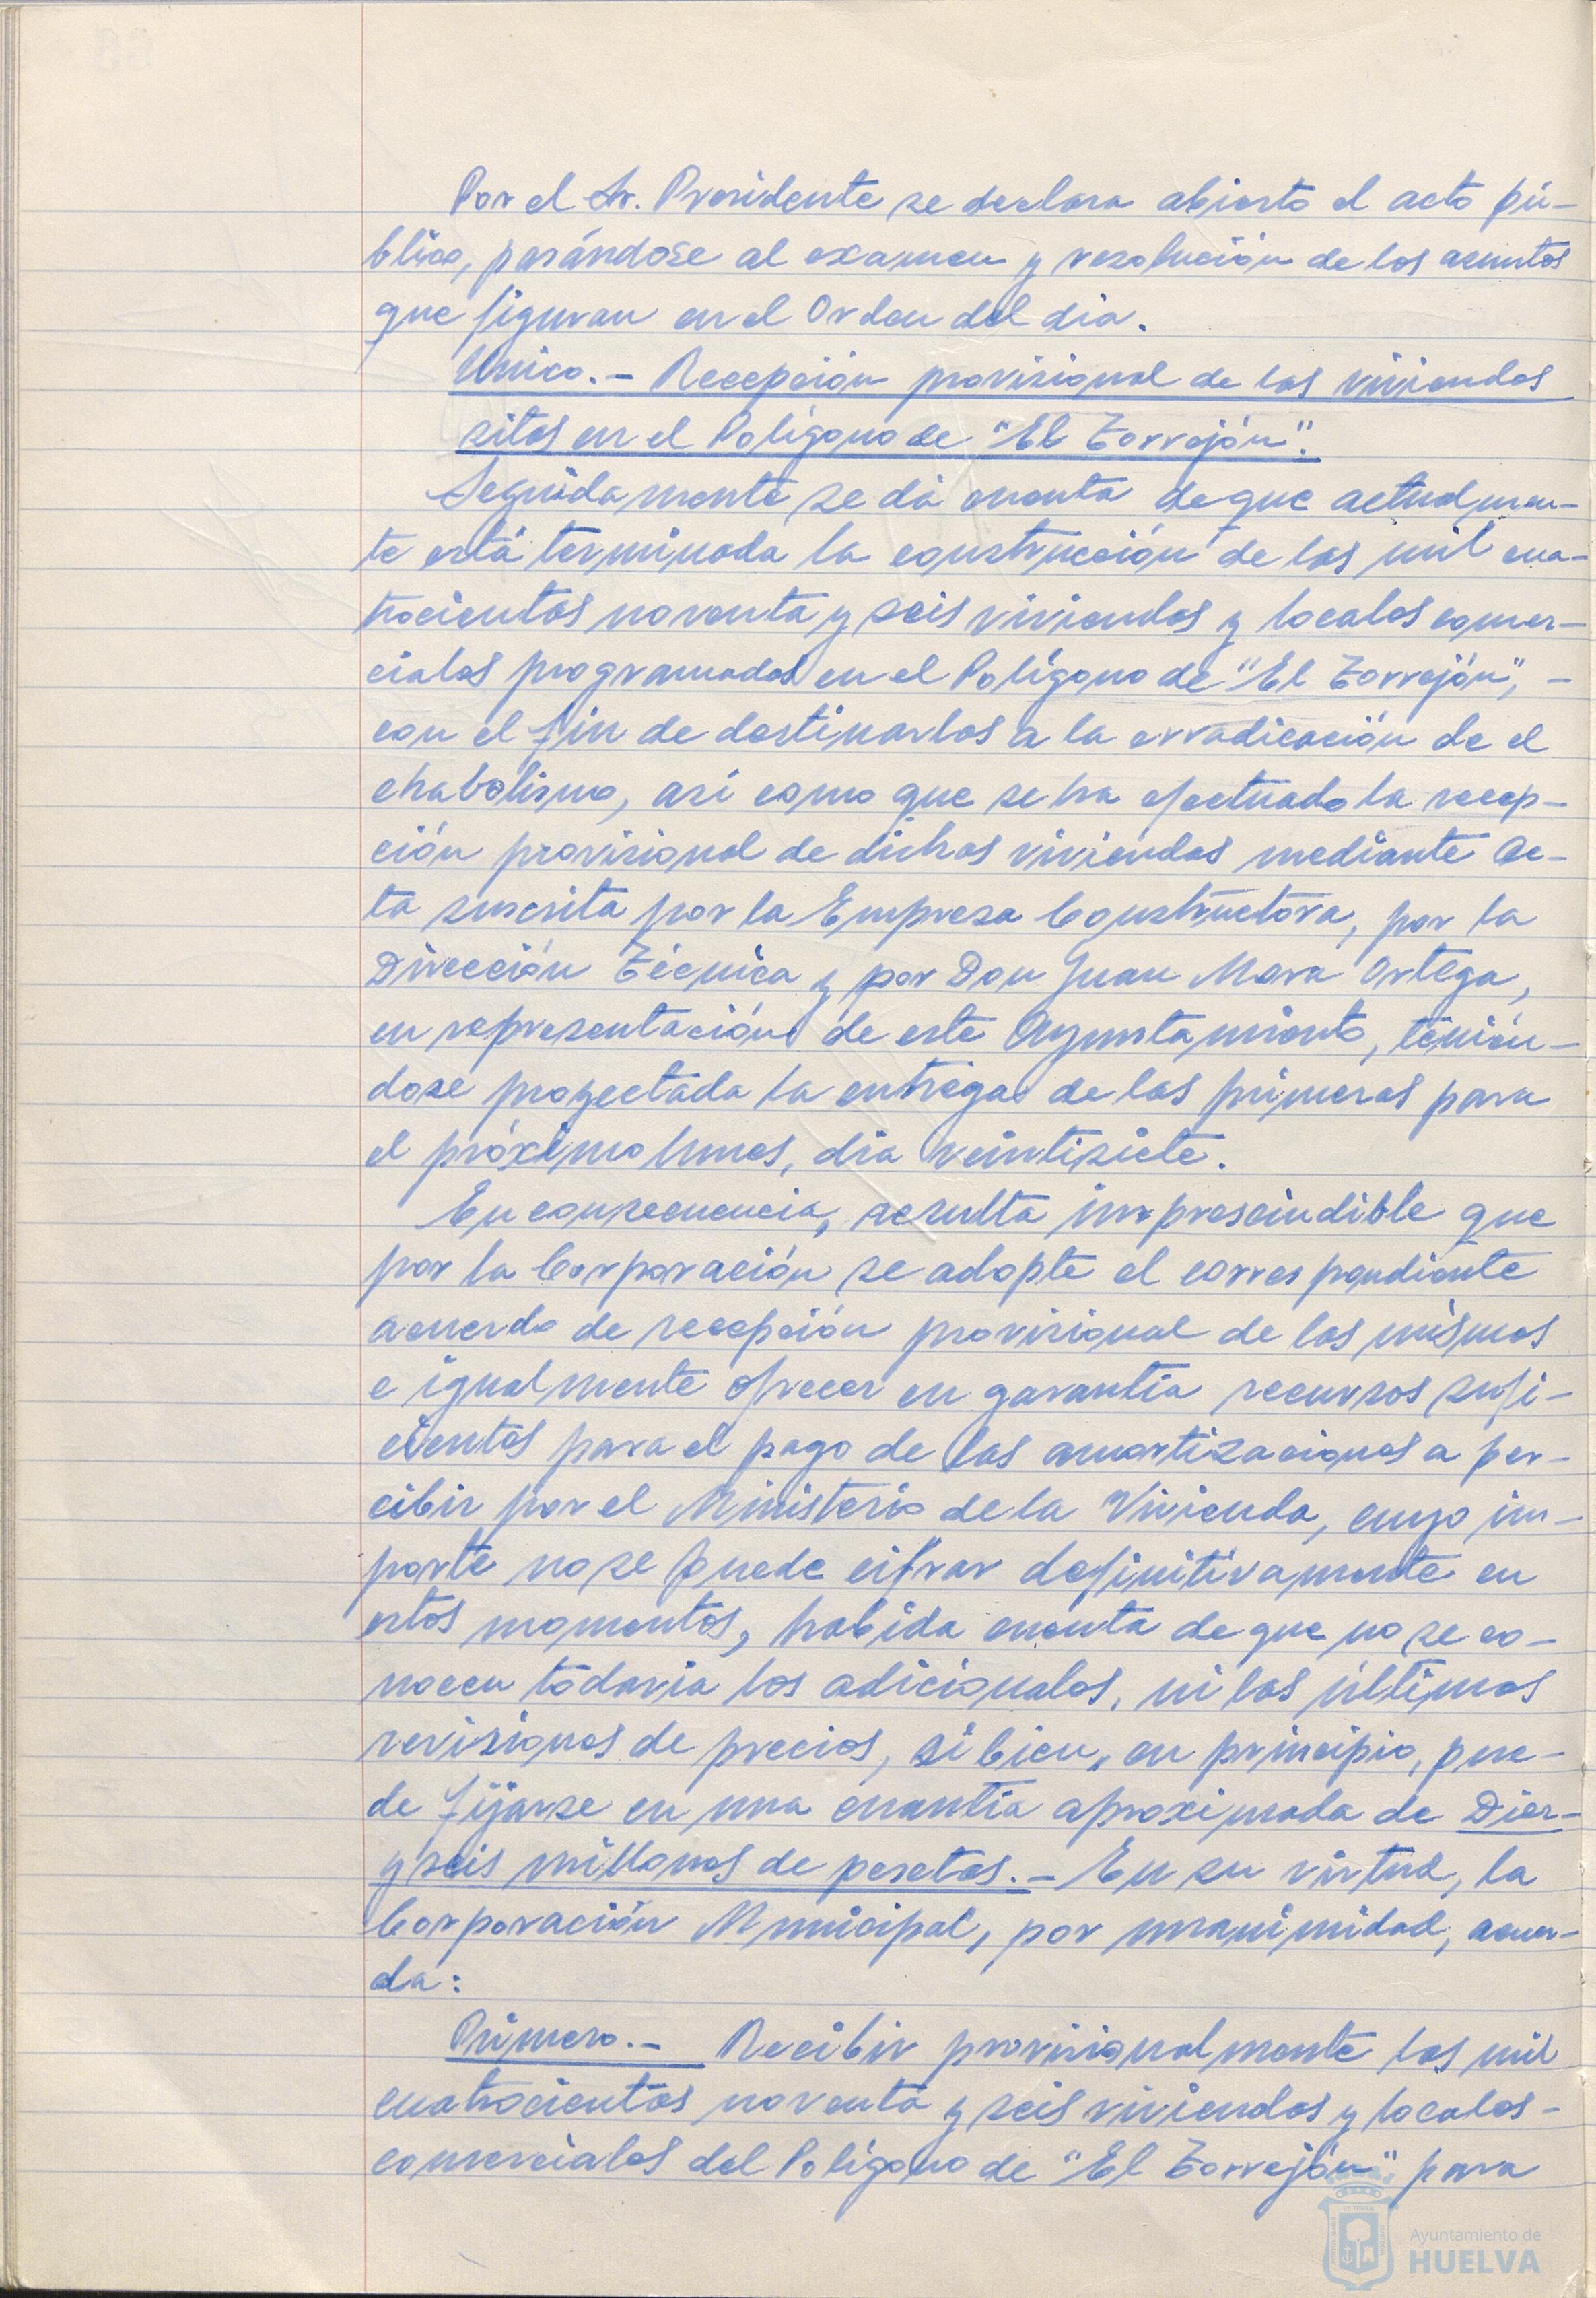 Por el Sr. Presidente se declara abierto el acto pú-
blico, pasándose al examen y resolución de los asuntos
que figuran en el Orden del dia.
Unico.- Recepción provisional de las viviendas
sitas en el Polígono de "El Torrejón".
Seguidamente se dá cuenta de que actualmen-
te está terminada la construcción de las mil cua-
trocientas noventa y seis viviendas y locales comer-
ciales programados en el Polígono de "El Torrejón", -
con el fin de destinarlos a la erradicación de el
chabolismo, así como que se ha efectuado la recep-
ción provisional de dichas viviendas mediante Ac-
ta suscrita por la Empresa Constructora, por la
Dirección Técnica y por Don Juan Mora Ortega,
en representación de este Ayuntamiento, tenién-
dose proyectada la entrega de las primeras para
el próximo lunes, dia veintisiete.
En consecuencia, resulta imprescindible que
por la Corporación se adopte el correspondiente
acuerdo de recepción provisional de las mismas
e igualmente ofrecer en garantía recursos sufi-
cientes para el pago de las amortizaciones a per-
cibir por el Ministerio de la Vivienda, cuyo im-
porte no se puede cifrar definitivamente en
estos momentos, habida cuenta de que no se co-
nocen todavia los adicionales, ni las últimas
revisiones de precios, si bien, en principio, pue-
de fijarse en una cuantía aproximada de Diez-
y seis millones de pesetas.- En su virtud, la
Corporación Municipal, por unanimidad, acuer-
da:
Primero.- Recibir provisionalmente las mil
cuatrocientas noventa y seis viviendas y locales-
comerciales del Polígono de "El Torrejón" para
Ayuntamiento de
HUELVA